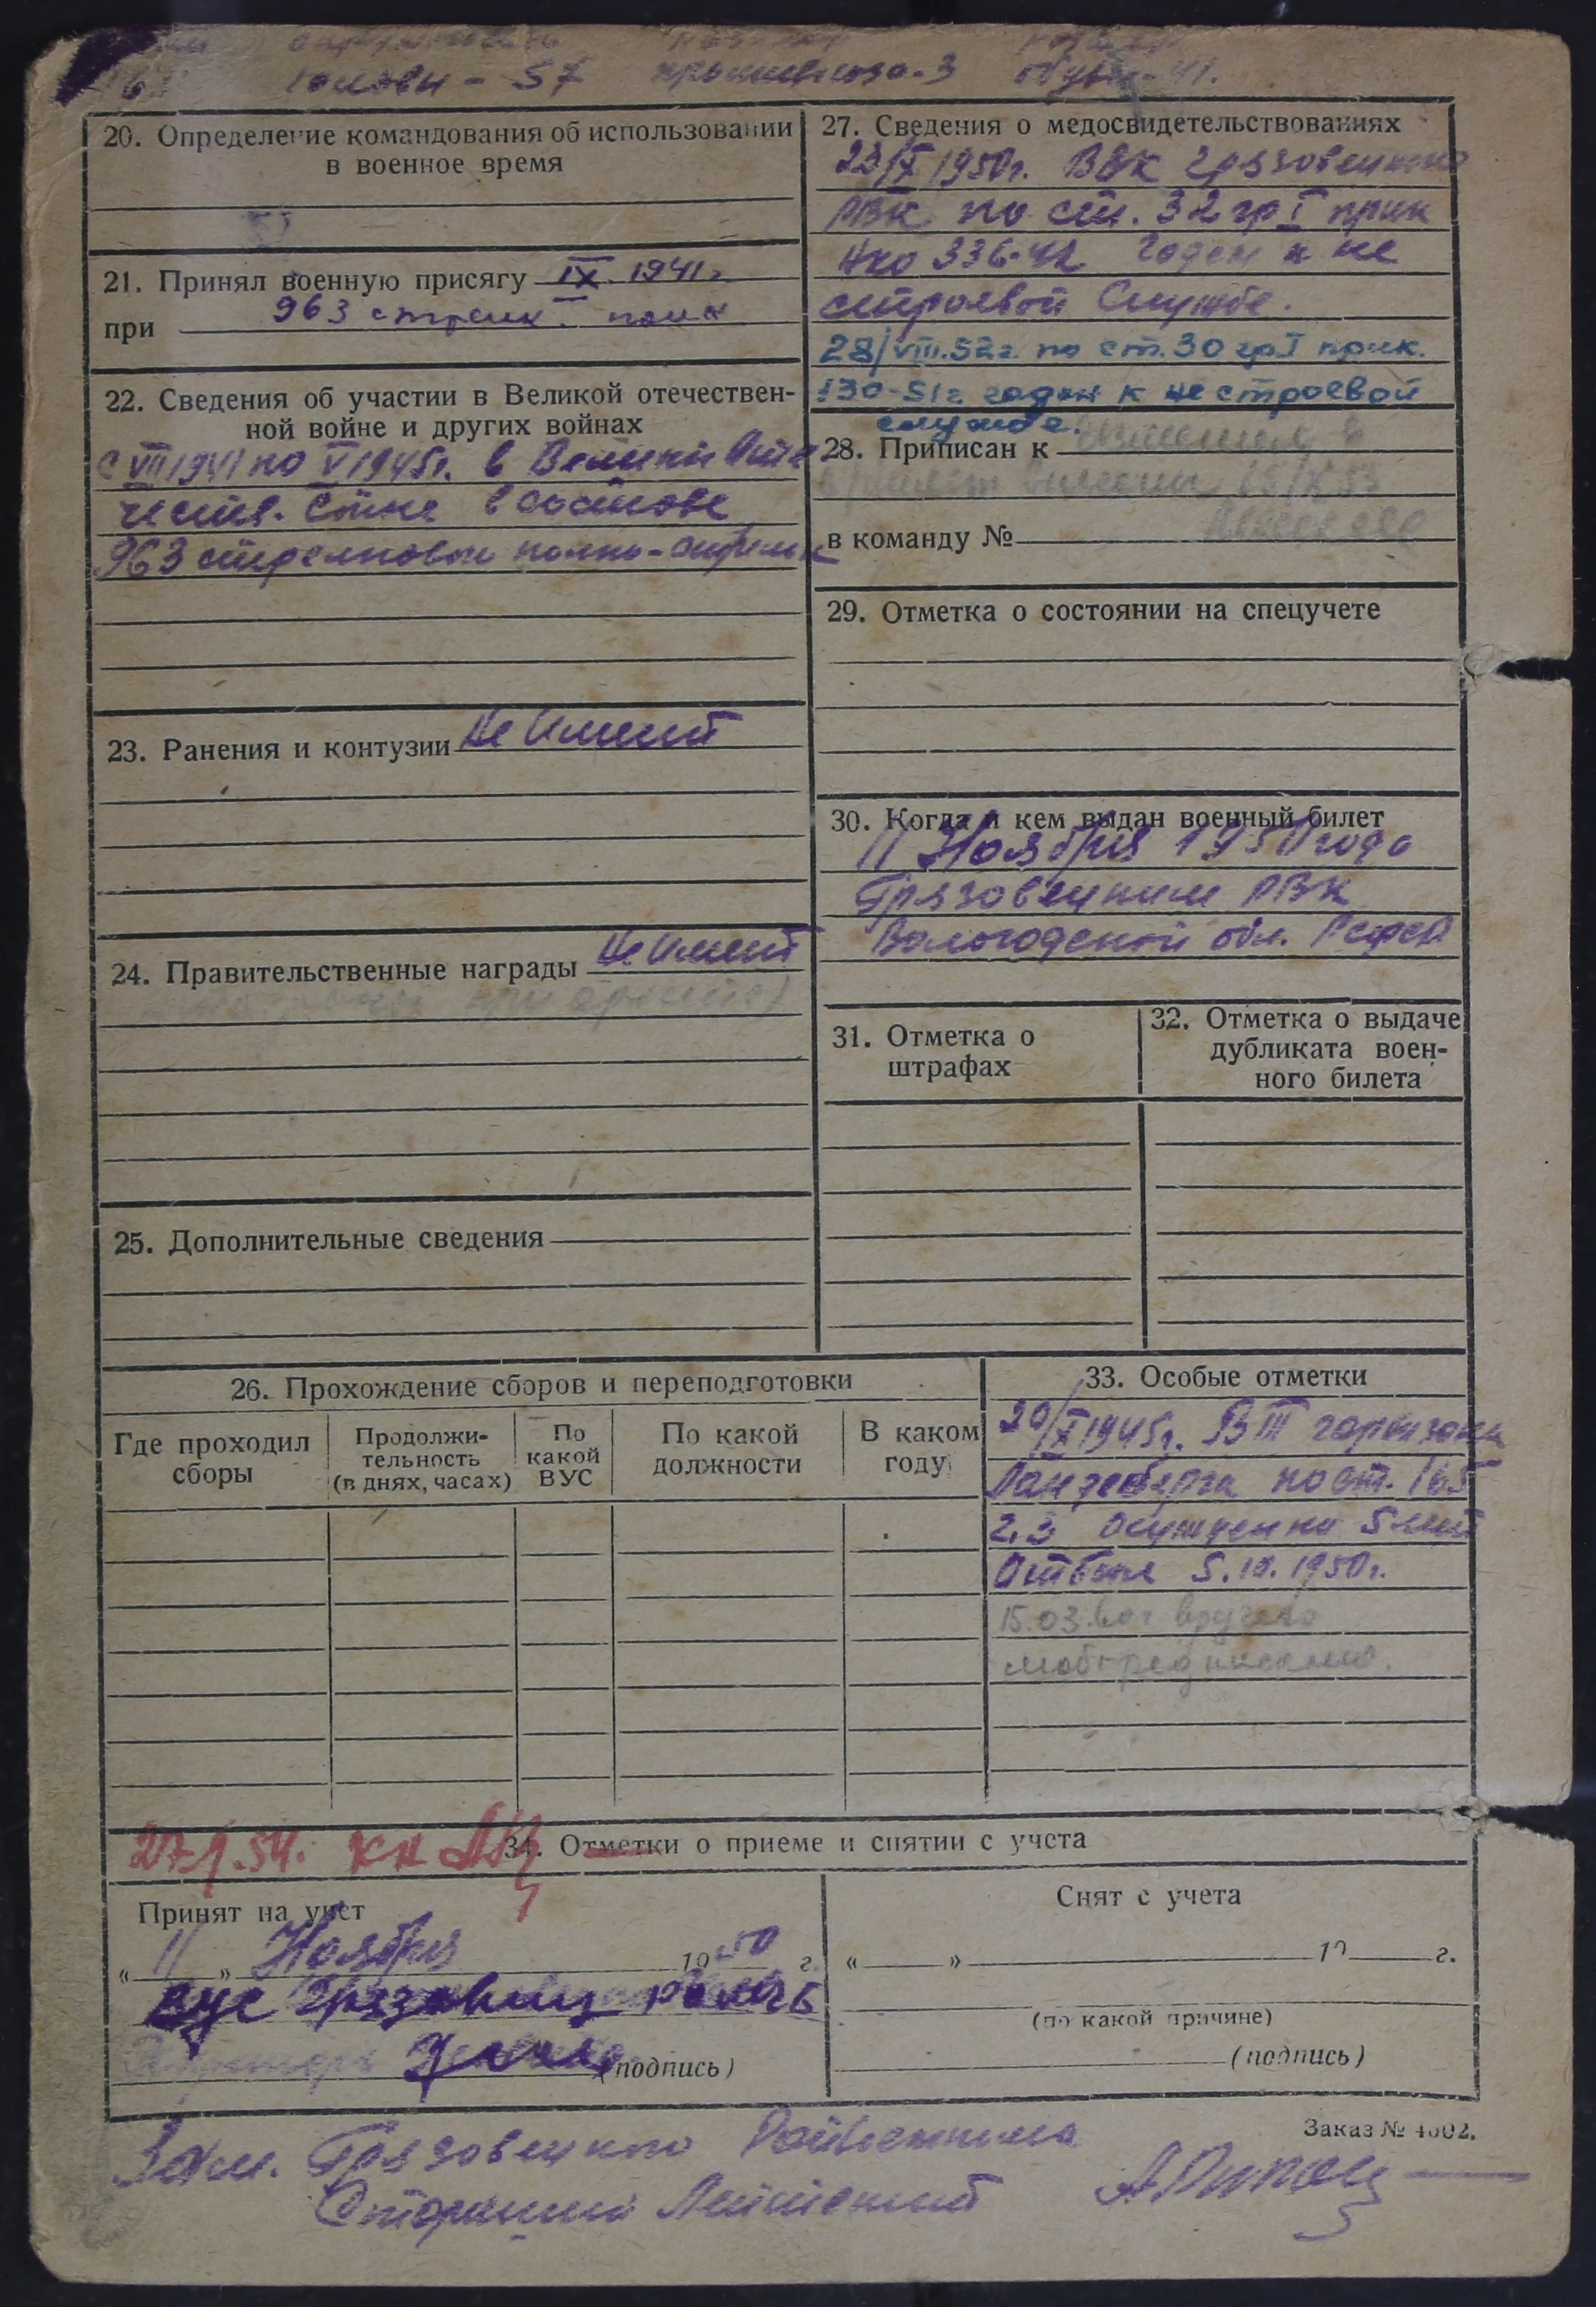 головы - 57 обувь - 41.
20. Определение командования об использовании
в военное время
21. Принял военную присягу IX. 1941 г
при 963 стрелк. полк
22. Сведения об участии в Великой отечествен-
ной войне и других войнах
С VIII 1941 по V 1945г. в Великой Оте
честв. Войне в составе
963 стрелковом полку - стрелок
23. Ранения и контузии Не Имеет
24. Правительственные награды Не имеет
25. Дополнительные сведения
27. Сведения о медосвидетельствованиях
23/X 1950г. ВВК Грязовецкого
РВК по ст. 32 гр I прик
НКО 336-42 годен к не
строевой Службе.
28/VIII.52г. по ст. 30 гр I прик.
130-51г. годен к не строевой
службе.
28. Приписан к
в команду №
29. Отметка о состоянии на спецучете
30. Когда и кем выдан военный билет
11 Ноября 1950 года
Грязовецким РВК
Вологодской обл. РСФСР
31. Отметка о
штрафах
32. Отметка о выдаче
дубликата воен-
ного билета
26. Прохождение сборов и переподготовки
Где проходил
сборы
Продолжи-
тельность
(в днях, часах)
По
какой
ВУС
По какой
должности
В каком
году
33. Особые отметки
20/X 1945г. ВТ гарнизона
Ландсберга по ст. 165
2,3 Осужден на 5 лет
Отбыл 5.IX.1950г.
15.03. вручено
мобпредписание.
27.1.54.
34. Отметки о приеме и снятии с учета
Принят на учет
« 11 » Ноября 1950 г.
ВУС Грязовец
(подпись)
Снят с учета
« » 19 г.
(по какой причине)
(подпись)
Заказ № 4002.
Зам. Грязовецкого Райвоенкома
Старший Лейтенант